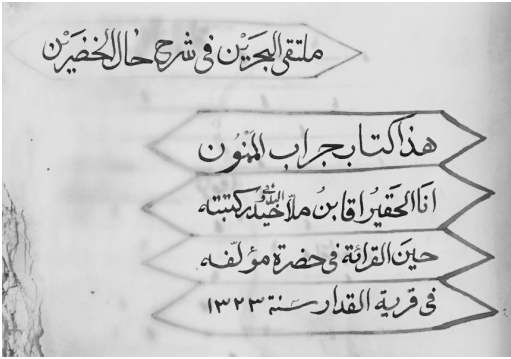 ملتقى البحرين فى شرح حال الخضرين
هذا كتاب جراب المنون
انا الحقير اقا بن ملا حيدر كتبته
حين القرائة فى حضرة مؤلفه
فى قرية القدار سنة ١٣٢٣